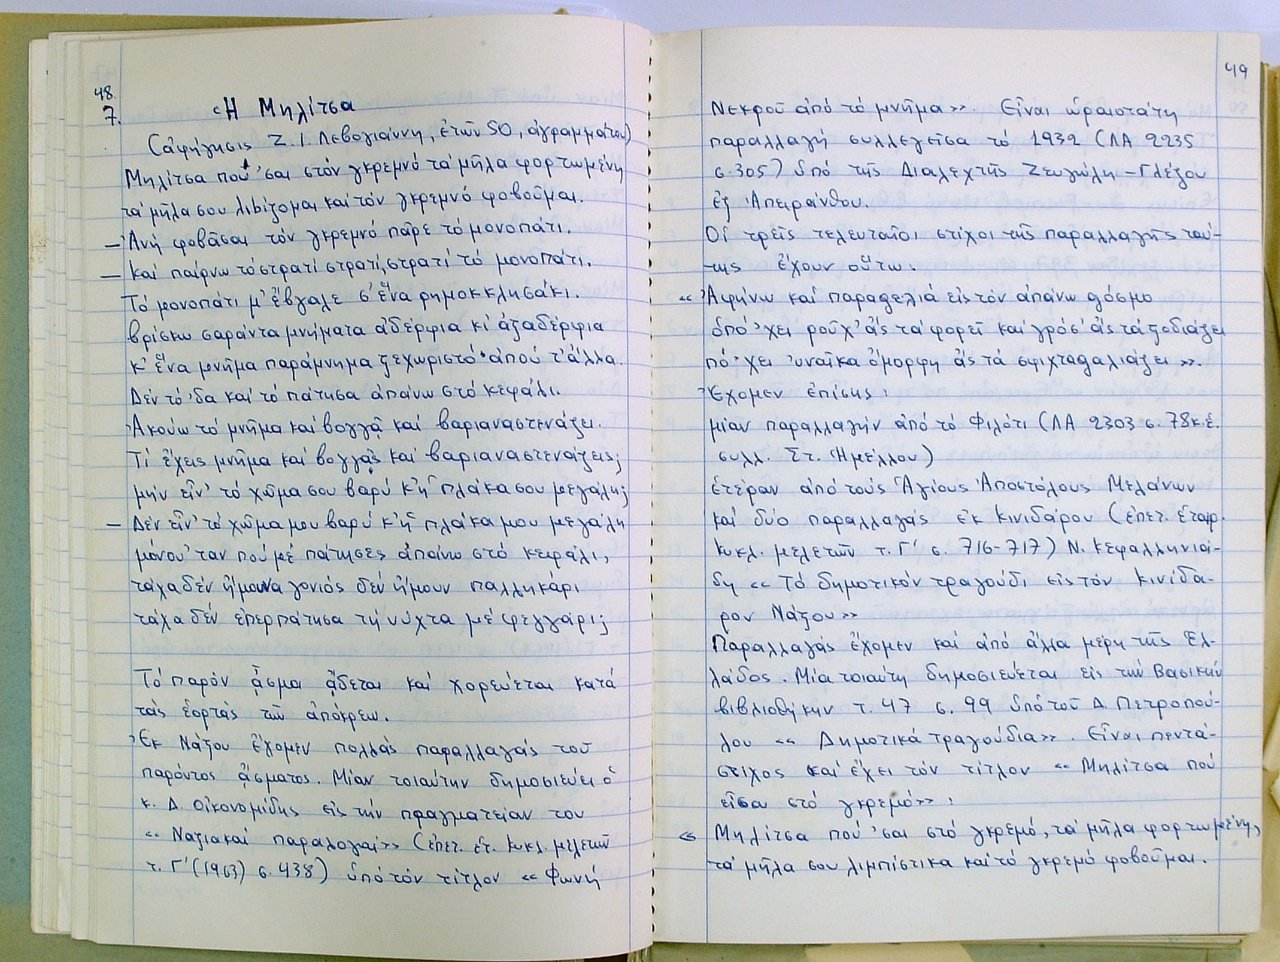 48.
7. «Η Μηλίτσα
(ἀφήγησις Ζ. Ι. Λεβογιάννη, ἐτῶν 50, ἀγραμμάτου)
Μηλίτσα πού 'σαι στόν γκρεμνό τά μῆλα φορτωμένη
τά μῆλα σου λιβίζομαι καί τόν γκρεμνό φοβοῦμαι.
– Ἀνή φοβᾶσαι τόν γκρεμνό πᾶρε τό μονοπάτι.
– Καί παίρνω τό στρατί στρατί, στρατί τό μονοπάτι.
Τό μονοπάτι μ' ἔβγαλε σ' ἕνα ρημοκκλησάκι.
βρίσκω σαράντα μνήματα ἀδέρφια κι' ἀξαδέρφια
κ' ἕνα μνῆμα παράμνημα ξεχωριστό ἀπού τ' ἄλλα.
Δέν τό 'δα καί τό πάτησα ἀπάνω στό κεφάλι.
Ἀκούω τό μνῆμα καί βογγᾷ καί βαριαναστενάζει.
Τί ἔχεις μνῆμα καί βογγᾷς καί βαριαναστενάζεις;
μήν εἶν' τό χῶμα σου βαρύ κ' ἡ πλάκα σου μεγάλη;
– Δέν εἶν' τό χῶμα μου βαρύ κ' ἡ πλάκα μου μεγάλη
μόνου 'ταν πού μέ πάτησες ἀπάνω στό κεφάλι,
τάχα δέν ἤμουνα γονιός δέν ἤμουν παλληκάρι
τάχα δέν ἐπερπάτησα τή νύχτα μέ φεγγάρι;
Τό παρόν ᾆσμα ᾄδεται καί χορεύεται κατά
τάς ἑορτάς τῶν ἀπόκρεω.
Ἐκ Νάξου ἔχομεν πολλάς παραλλαγάς τοῦ
παρόντος ᾄσματος. Μίαν τοιαύτην δημοσιεύει ὁ
κ. Δ. Οἰκονομίδης εἰς τήν πραγματείαν του
«Ναξιακαί παραλογαί» (ἐπετ. ἑτ. κυκλ. μελετῶν
τ. Γ' (1963) σ. 438) ὑπό τόν τίτλον «Φωνή
49
Νεκροῦ ἀπό τό μνῆμα». Εἶναι ὡραιοτάτη
παραλλαγή συλλεγεῖσα τό 1932 (ΛΑ 2235
σ. 305) ὑπό τῆς Διαλεχτῆς Ζευγώλη - Γλέζου
ἐξ Ἀπειράνθου.
Οἱ τρεῖς τελευταῖοι στίχοι τῆς παραλλαγῆς ταύ-
της ἔχουν οὕτω:
«Ἀφήνω καί παραγγελιά εἰς τόν ἀπάνω κόσμο
ὁπό 'χει ροῦχ' ἄς τά φορεῖ καί γρόσ' ἄς τά ξοδιάζει
πό 'χει 'υναῖκα ὄμορφη ἄς τά σφιχταγαλιάζει».
Ἔχομεν ἐπίσης:
μίαν παραλλαγήν ἀπό τό Φιλότι (ΛΑ 2303 σ. 78 κ.ἑ.
συλλ. Στ. Ἠμέλλου)
ἑτέραν ἀπό τούς Ἁγίους Ἀποστόλους Μελάνων
καί δύο παραλλαγάς ἐκ Κινιδάρου (ἐπετ. ἑταιρ.
κυκλ. μελετῶν τ. Γ' σ. 716-717) Ν. Κεφαλληνιά-
δη «Τό δημοτικόν τραγούδι εἰς τόν Κινίδα-
ρον Νάξου»
Παραλλαγάς ἔχομεν καί ἀπό ἄλλα μέρη τῆς Ἑλ-
λάδος. Μία τοιαύτη δημοσιεύεται εἰς τήν Βασικήν
βιβλιοθήκην τ. 47 σ. 99 ὑπό τοῦ Δ. Πετροπού-
λου «Δημοτικά τραγούδια». Εἶναι πεντά-
στιχος καί ἔχει τόν τίτλον «Μηλίτσα πού
εἶσαι στό γκρεμό»:
«Μηλίτσα πού 'σαι στό γκρεμό, τά μῆλα φορτωμένη,
τά μῆλα σου λιμπίστικα καί τό γκρεμό φοβοῦμαι.